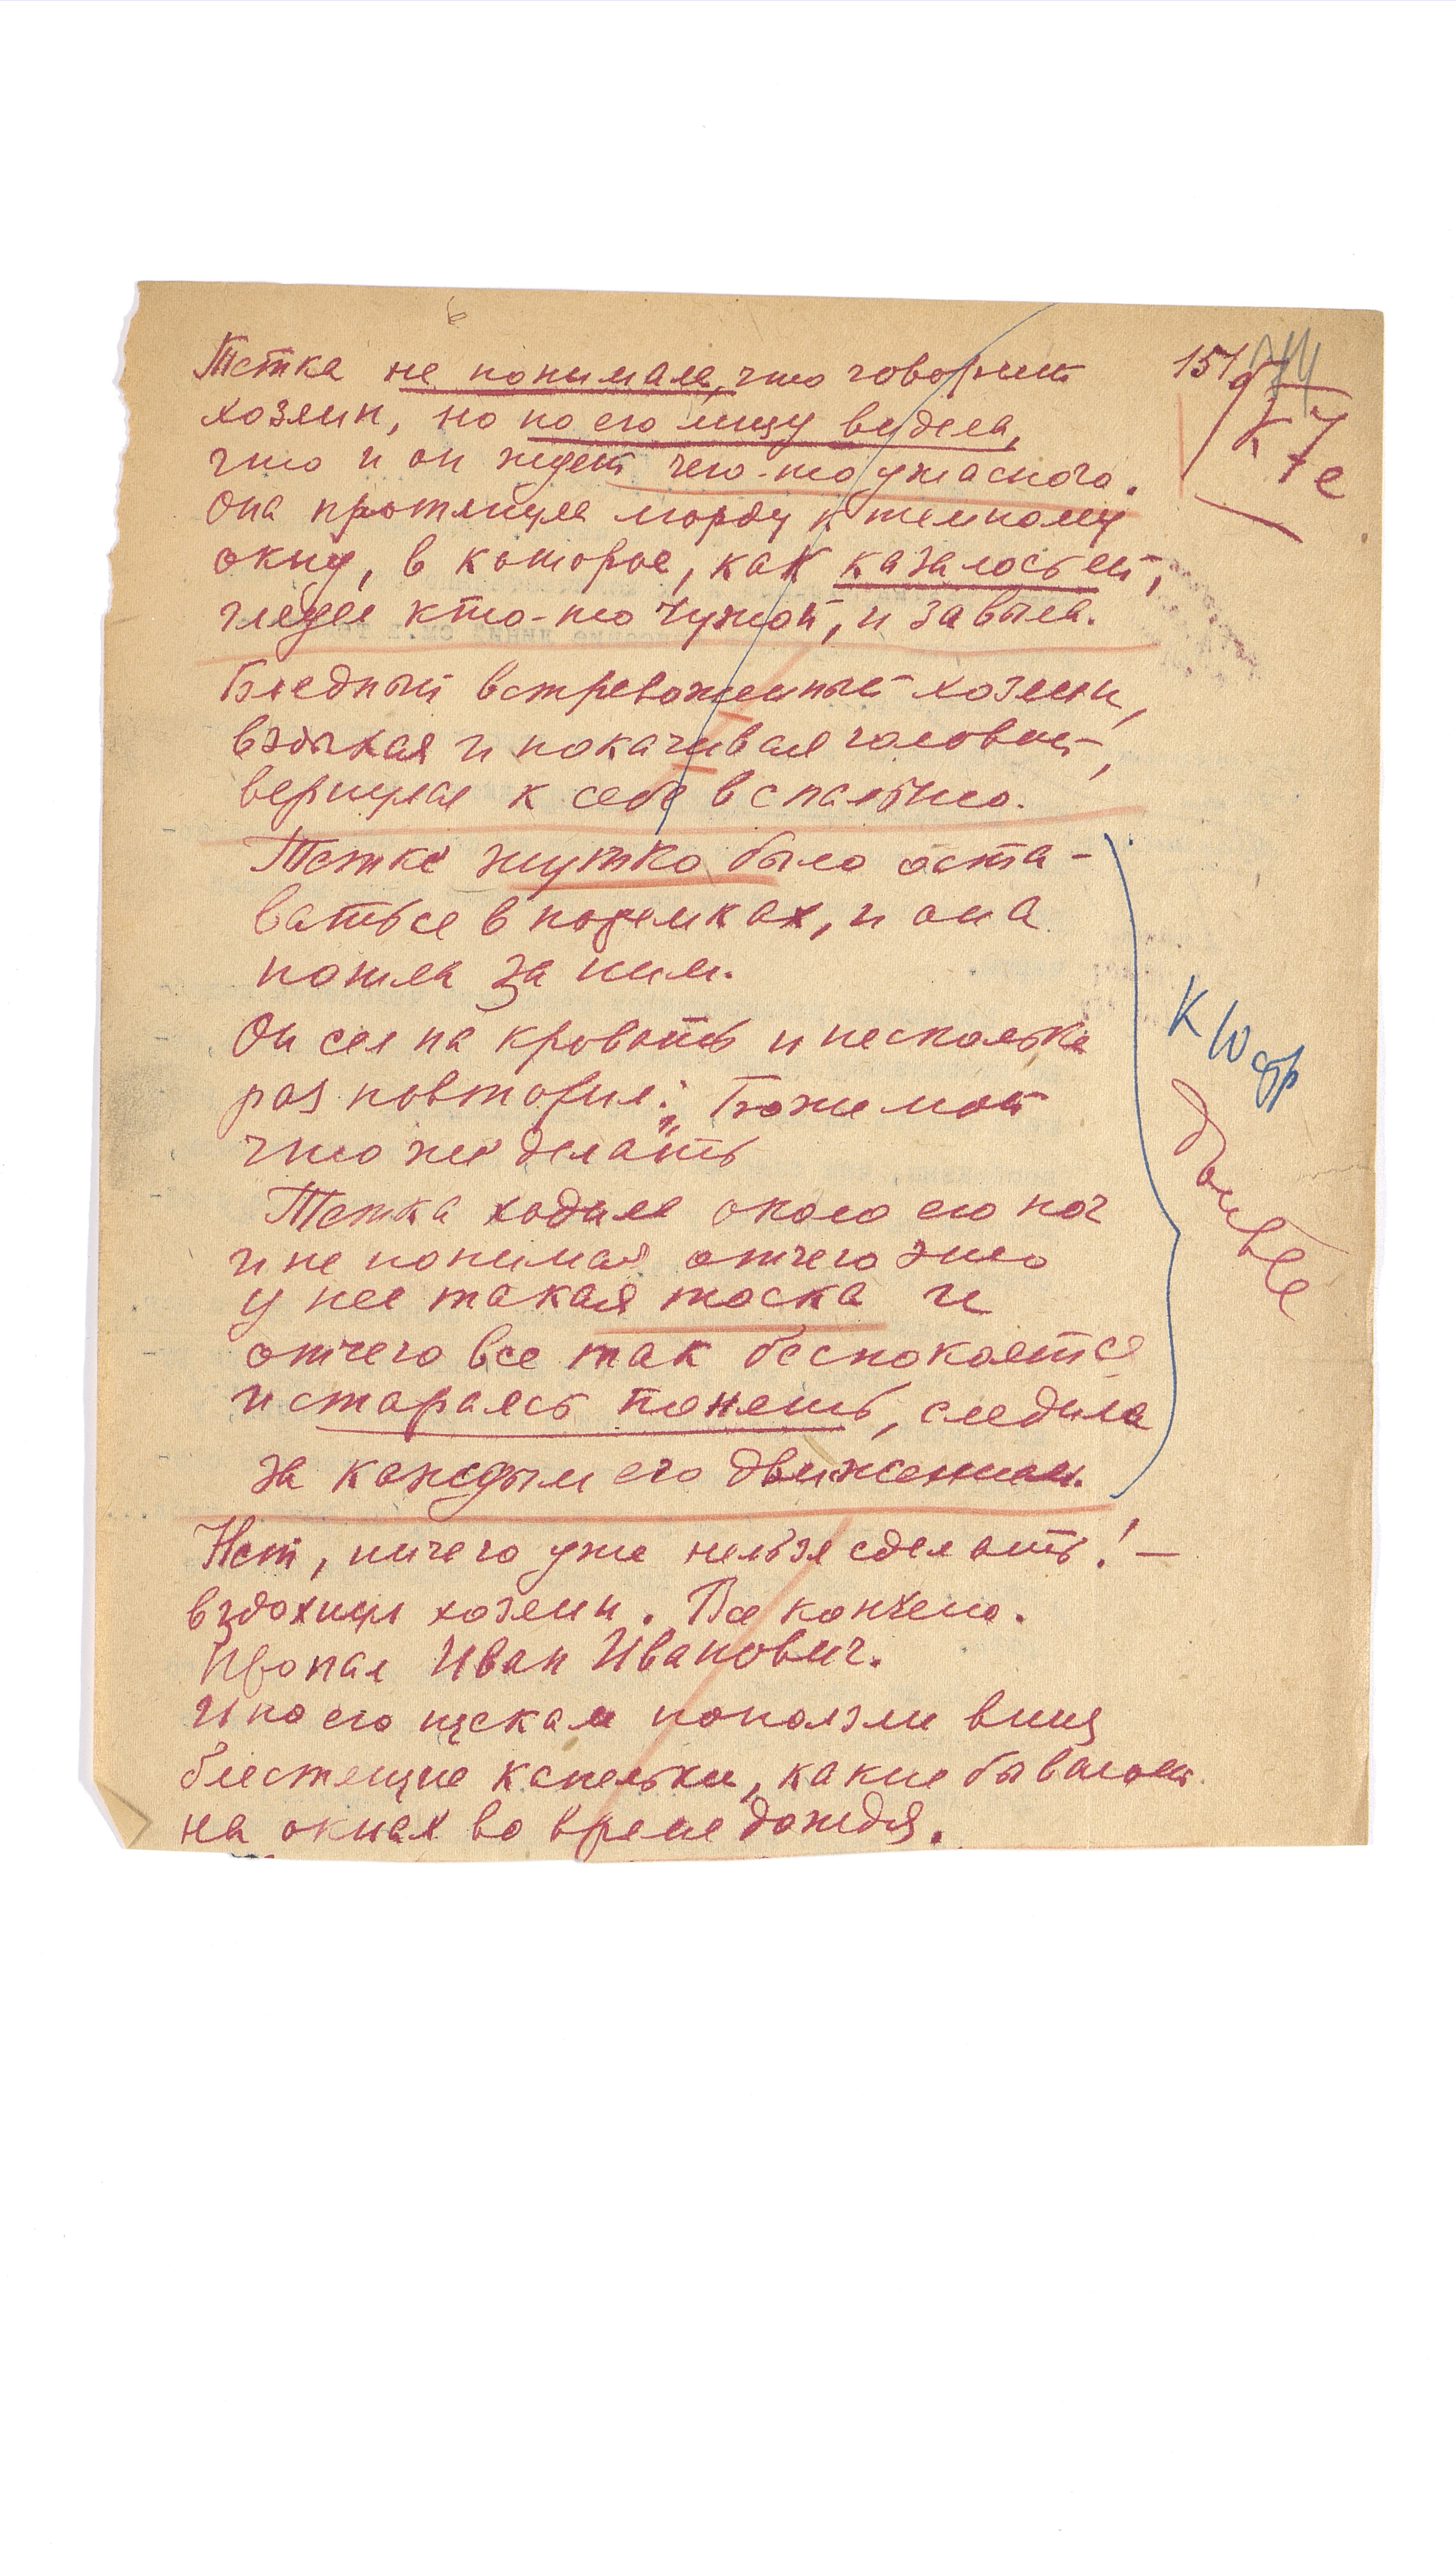 Тетка не понимала, что говорит
хозяин, но по его лицу видела,
что и он ждет чего-то ужасного.
Она протянула морду к темному
окну, в которое, как казалось ей,
глядел кто-то чужой, и завыла.
Бледный встревоженный хозяин,
вздыхая и покачивая головой,
вернулся к себе в спальню.
Тетке жутко было оста-
ваться в потемках, и она
пошла за ним.
Он сел на кровать и несколько
раз повторил: „Боже мой
что же делать
Тетка ходила около его ног
и не понимая отчего это
у нее такая тоска и
отчего все так беспокоятся
и стараясь понять, следила
за каждым его движением.
Нет, ничего уже нельзя сделать! —
вздохнул хозяин. Все кончено.
Пропал Иван Иванович.
И по его щекам поползли вниз
блестящие капельки, какие бывают
на окнах во время дождя.
151
к 7
к 10 фр